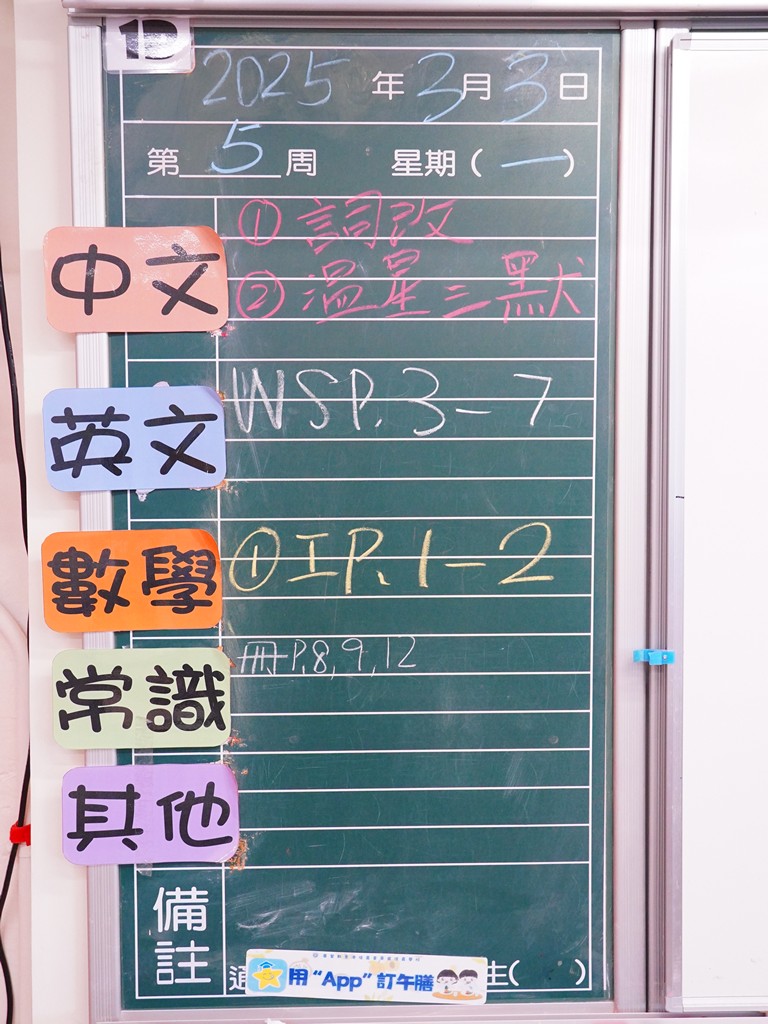 1D
2025年3月3日
第5周 星期(一)
中文
① 詞改
② 溫星三默
英文
WSP.3-7
數學
① IP.1-2
常識
冊P.8,9,12
其他
備註
用“App”訂午膳
生( )